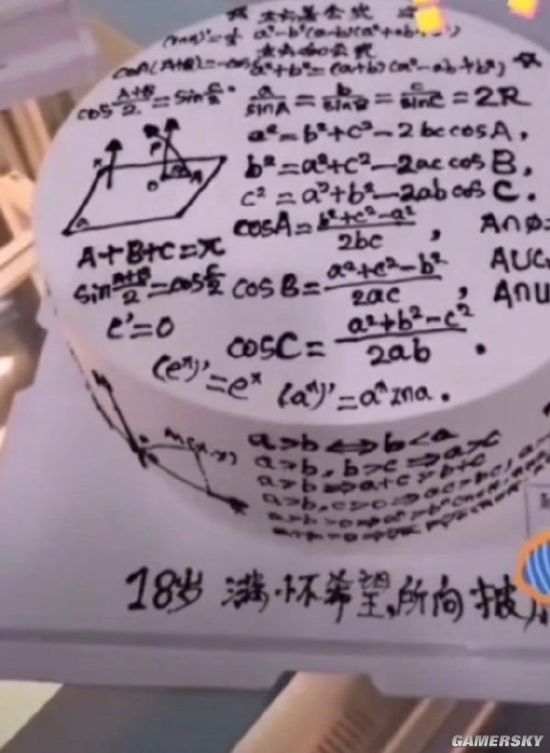 a³-b³=(a-b)(a²+ab+b²)
a³+b³=(a+b)(a²-ab+b²)
cos A+B/2=sin C/2.
a/sinA=b/sinB=c/sinC=2R
a²=b²+c²-2bccosA,
b²=a²+c²-2accosB,
c²=a²+b²-2abcosC.
A+B+C=π
cosA=b²+c²-a²/2bc,
sin A+B/2=cos C/2
cosB=a²+c²-b²/2ac,
c'=0
cosC=a²+b²-c²/2ab.
(eˣ)'=eˣ
(aˣ)'=aˣlna.
A∩∅=
A∪
A∩U
M(x,y)
a>b⟺b<a
a>b,b>c⇒a>c
a>b⇒a+c>b+c
a>b,c>0⇒ac>bc,
18岁 满怀希望,所向披
GAMERSKY